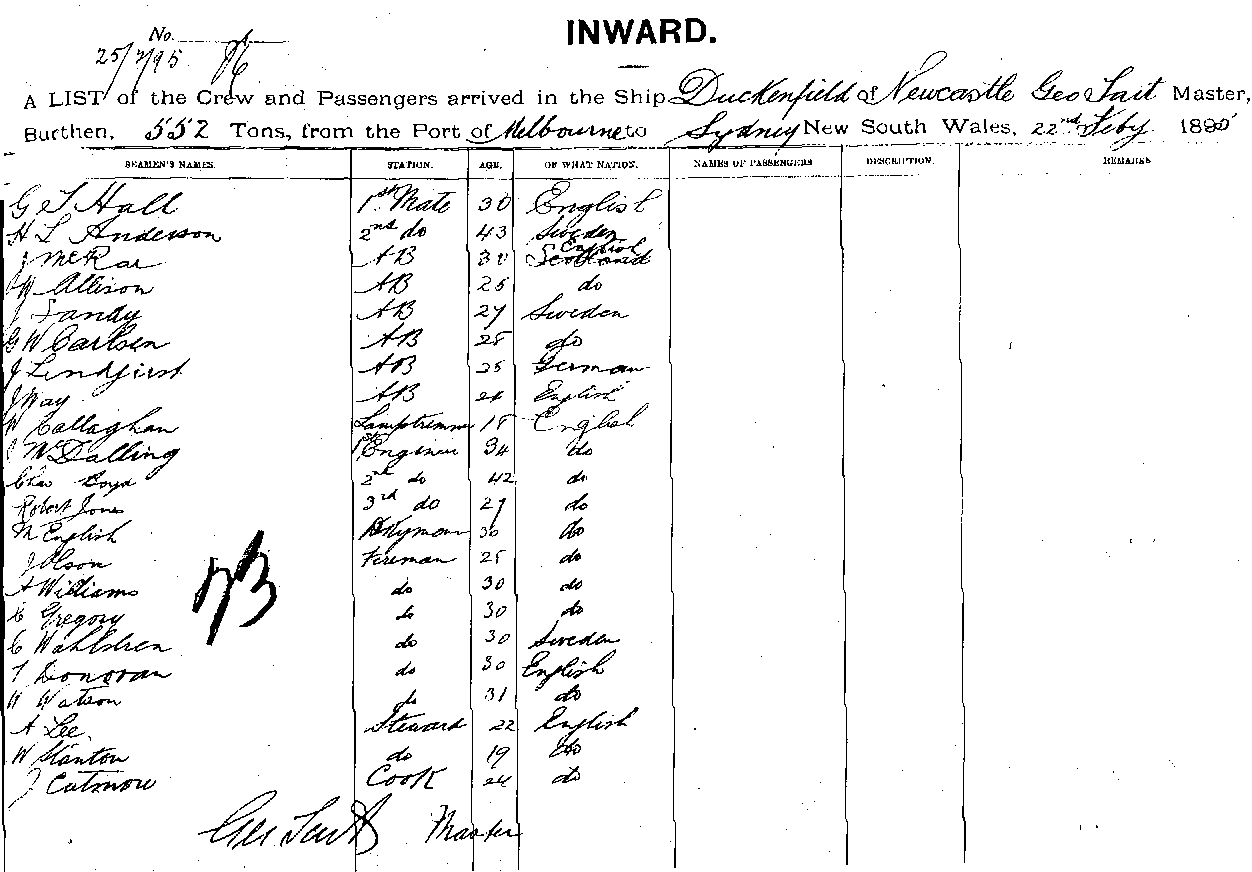 INWARD.
No.
25/2/95
A LIST of the Crew and Passengers arrived in the Ship Duckenfield of Newcastle Geo Tait Master,
Burthen, 552 Tons, from the Port of Melbourne to Sydney New South Wales, 22nd Feby. 1895
SEAMEN'S NAMES. STATION. AGE. OF WHAT NATION. NAMES OF PASSENGERS DESCRIPTION. REMARKS
G T Hall 1st Mate 30 English
H L Anderson 2nd do 43 Sweden
J McRae AB 30 Scotland English
W Allison AB 25 do
J Sandy AB 27 Sweden
G W Carlsen AB 28 do
J Lindfirst AB 25 German
J Way AB 24 English
W Callaghan Lamptrimmer 18 English
McDalling 1st Engineer 34 do
Chas Boyd 2nd do 42 do
Robert Jones 3rd do 27 do
M English Dkyman 30 do
J Olson Fireman 25 do
A Williams do 30 do
C Gregory do 30 do
C Wahlstren do 30 Sweden
T Donovan do 30 English
W Watson do 31 do
A Lee Steward 22 English
W Stanton do 19 do
J Catmow Cook 24 do
Geo Tait Master